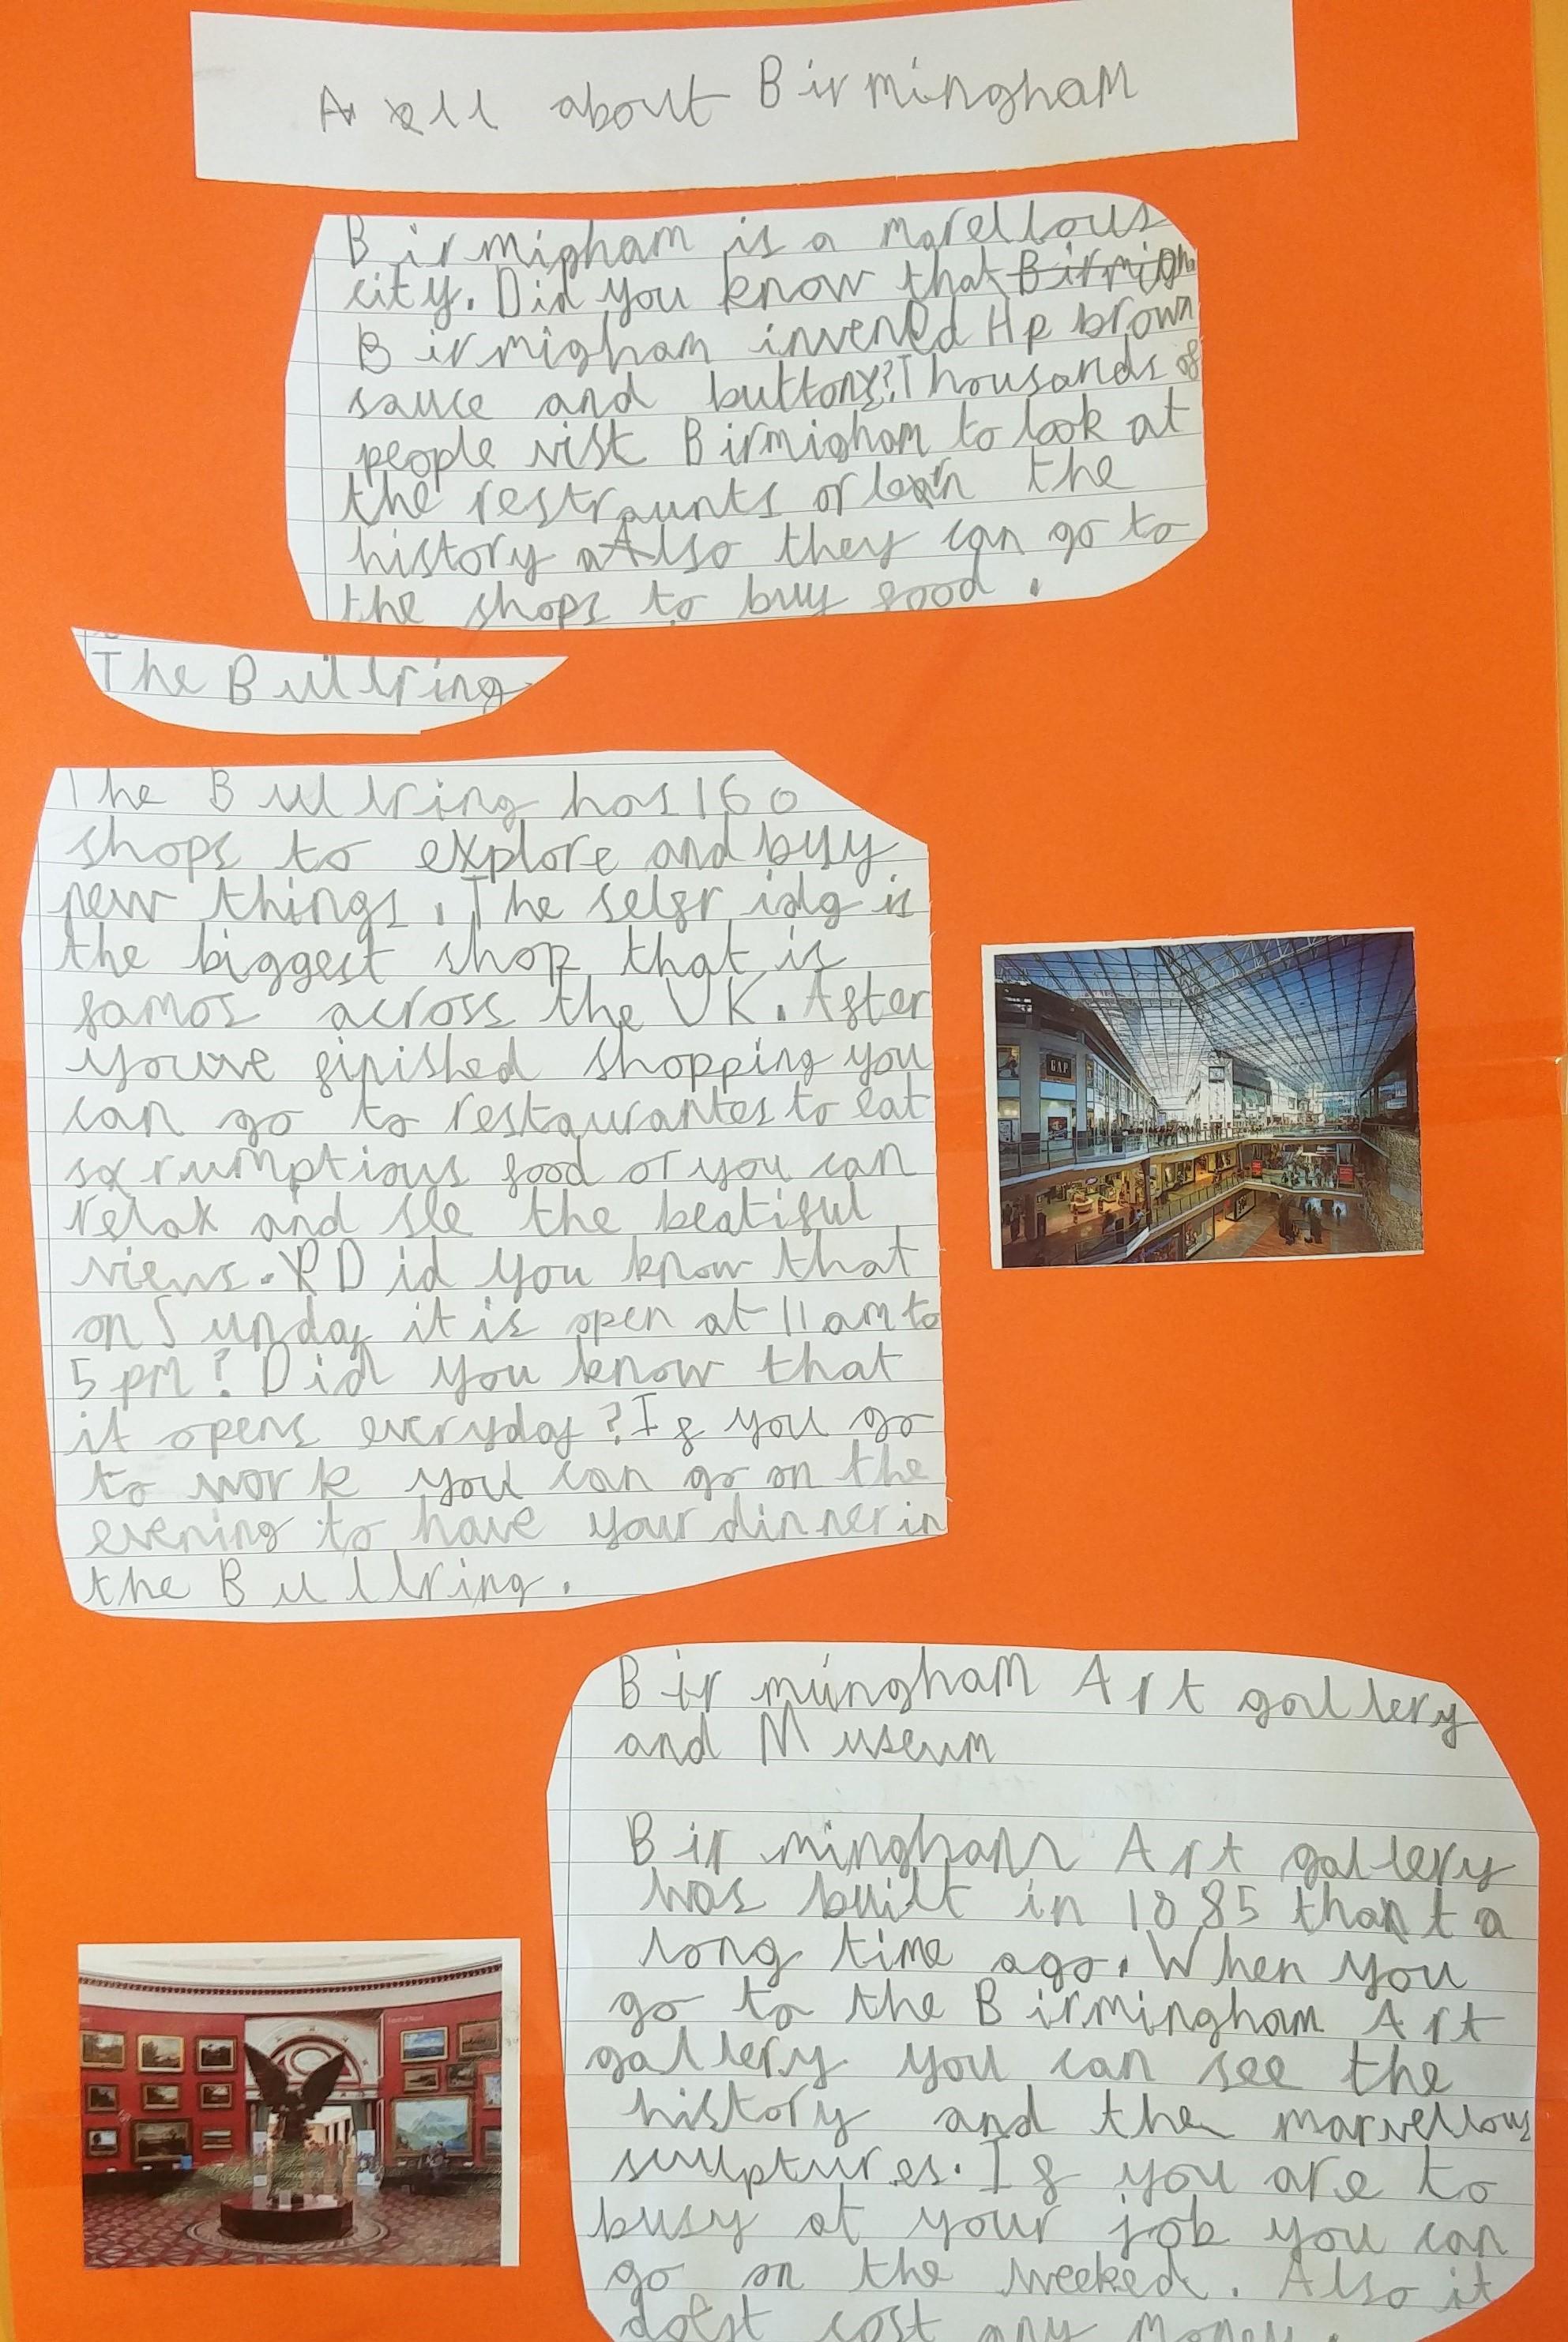 All about Birmingham
Birmigham is a morellous
city. Did you know that Birmigh
Birmigham invented Hp brown
sauce and buttons? Thousands of
people vist Birmigham to look at
the restraunts or learn the
history Also they can go to
the shops to buy food.
The Bullring
The Bullring has 160
shops to explore and buy
new things. The selfridg is
the biggest shop that is
famos across the UK. After
youve finished shopping you
can go to restaurantes to eat
scrumptious food or you can
relax and see the beatiful
views. Did you know that
on Sunday it is open at 11am to
5pm? Did you know that
it opens everyday? If you go
to work you can go on the
evening to have your dinner in
the Bullring.
GAP
Birmingham Art gallery
and Museum
Birmingham Art gallery
was built in 1885 that a
long time ago. When you
go to the Birmingham Art
gallery you can see the
history and the marvellous
sculptures. If you are to
busy at your job you can
go on the weeked. Also it
doest cost any money.